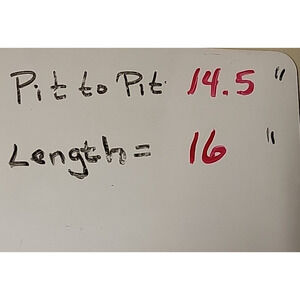 Pit to Pit 14.5 "
Length = 16 "